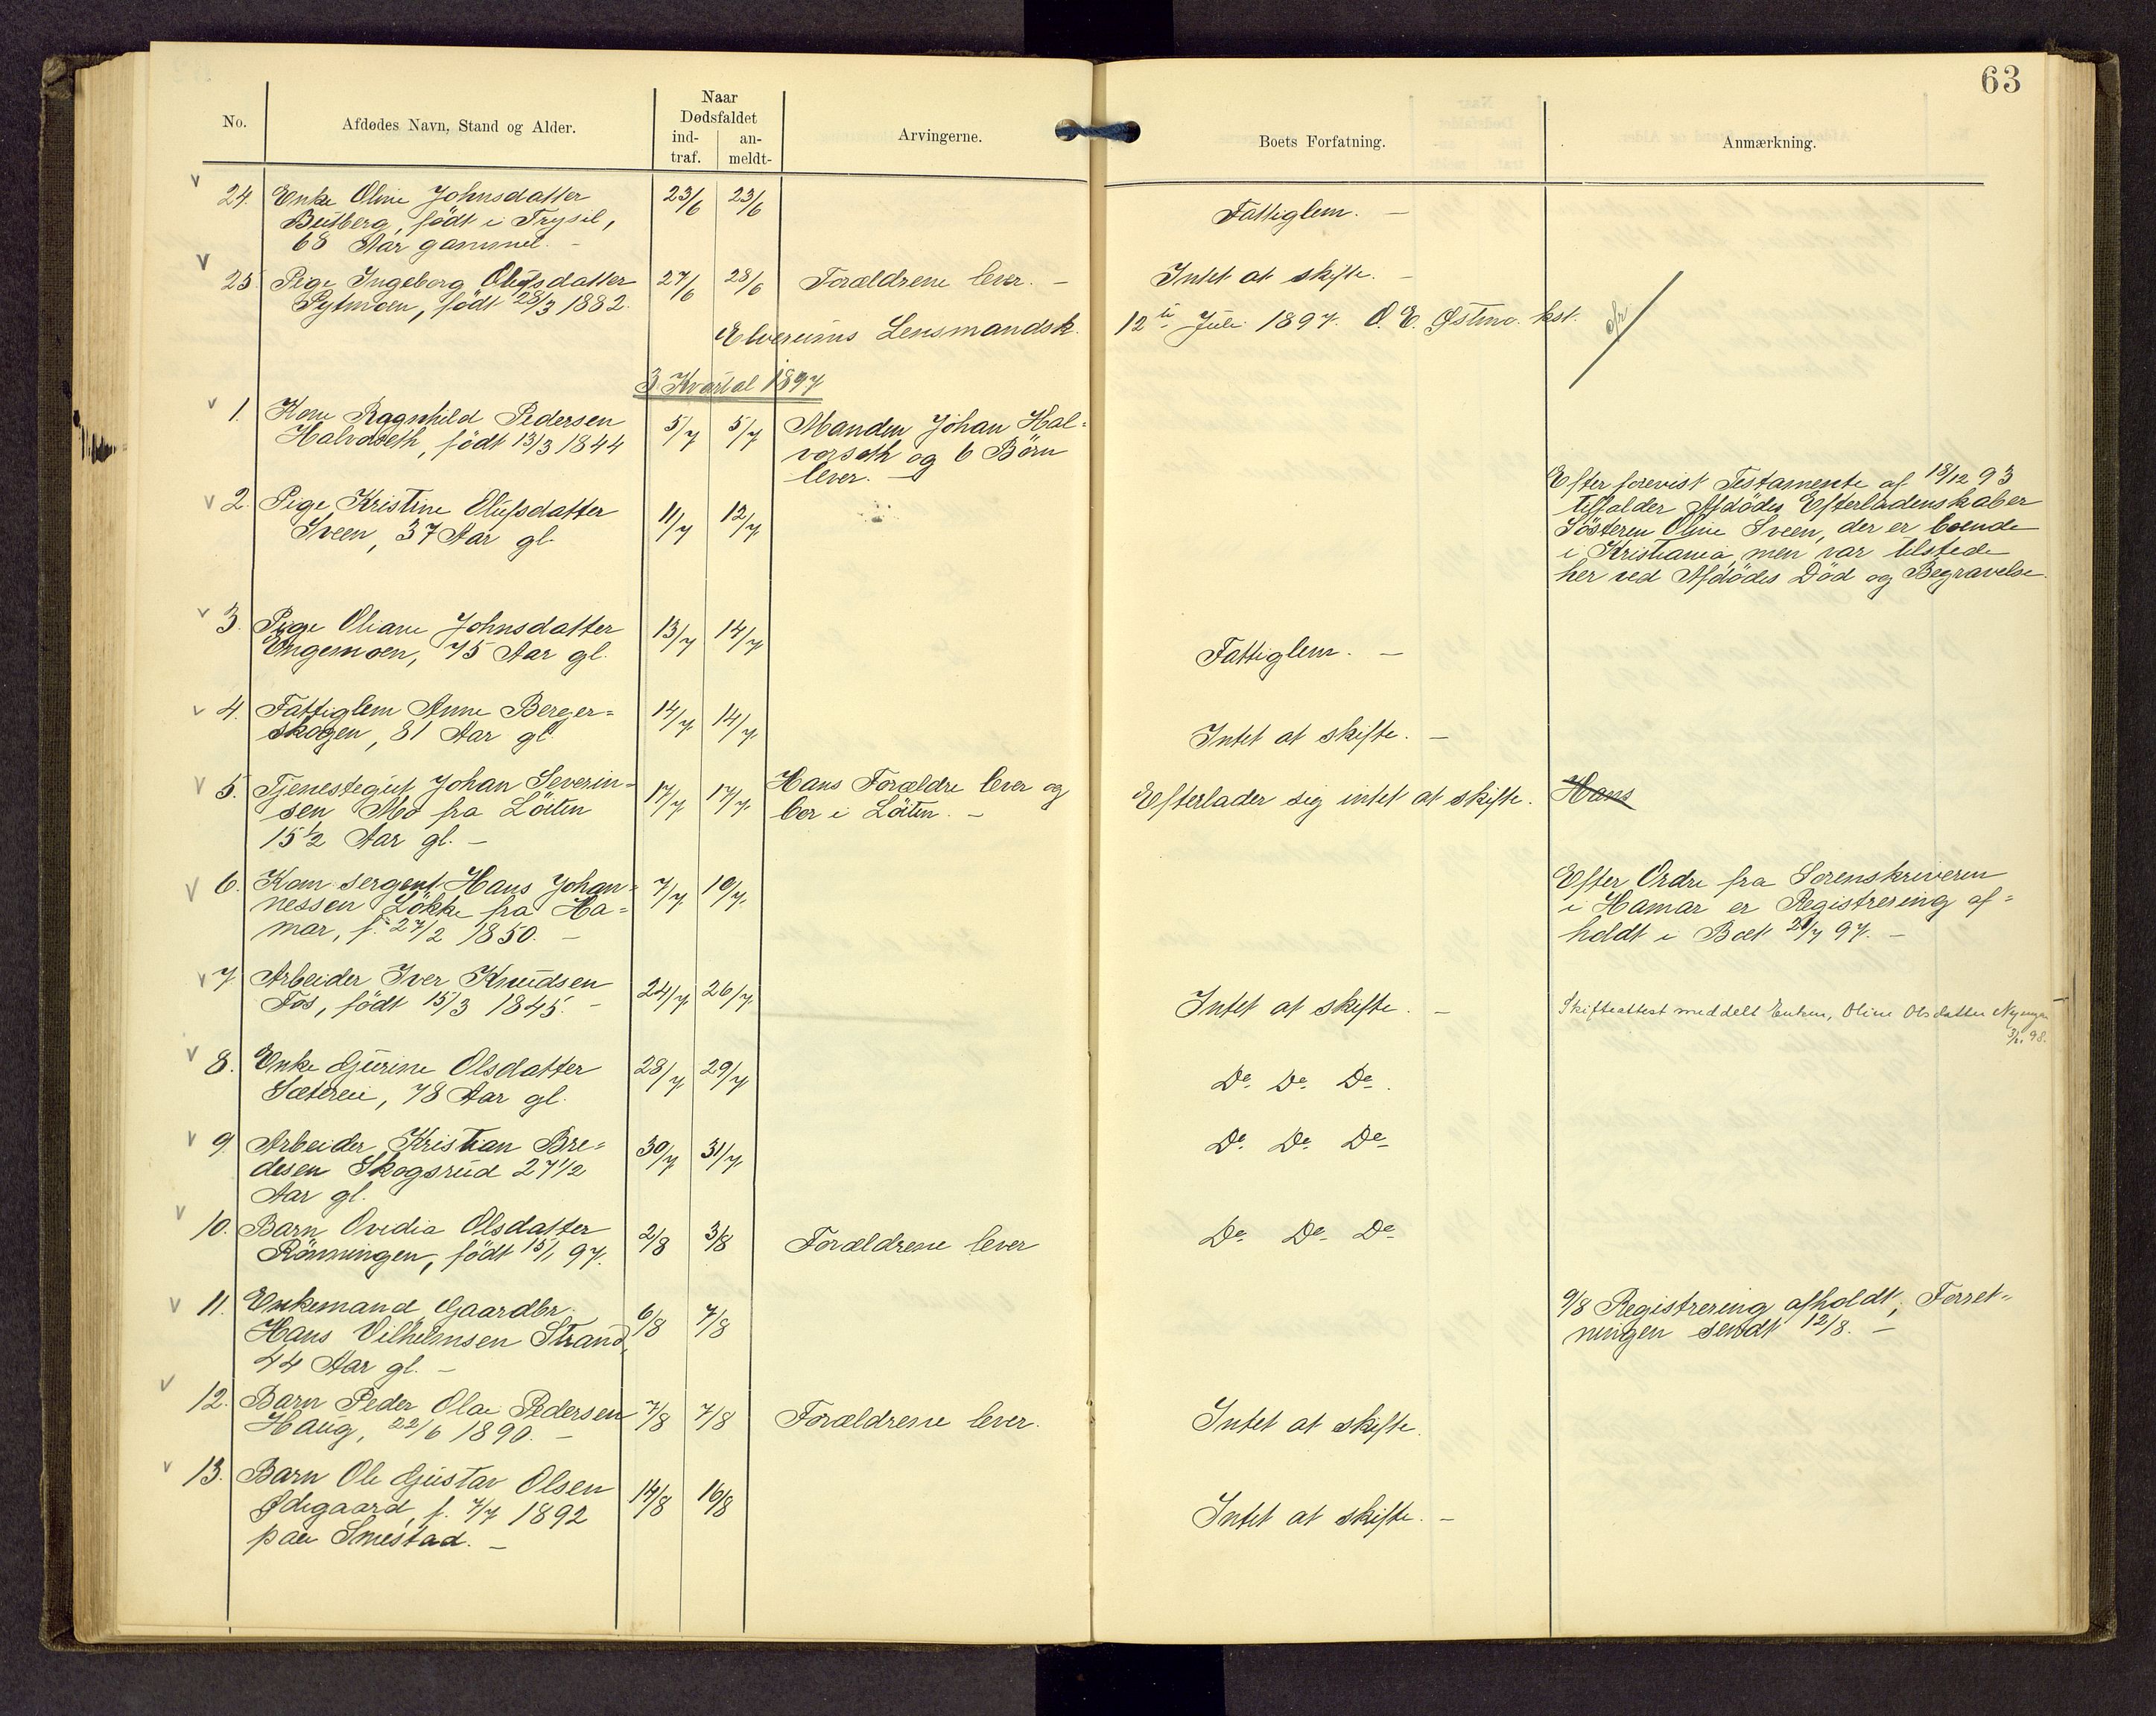 63
No.
Afdødes Navn, Stand og Alder.
Naar
Dødsfaldet
ind-
traf.
an-
meldt-
Arvingerne.
Boets Forfatning.
Anmærkning.
24. Enke Oline Johnsdatter 23/6 23/6 Fattiglem. —
født i Trysil,
68 Aar gammel. —
25. Pige Ingeborg Olufsdatter 27/6 28/6 Forældrene lever. — Intet at skifte. —
Pytmoen, født 28/3 1882.
Elverums Lensmandsk. 12te Juli 1897. O. E. Østmo. kst.
3 Kvartal 1897
1. Kone Ragnhild Pedersen 5/7 5/7 Manden Johan Hal-
Halvorseth, født 13/3 1844 vorseth og 6 Børn
lever. —
2. Pige Kristine Olufsdatter 11/7 12/7 Efter forevist Testamente af 18/12 93
Sveen, 37 Aar gl. tilfalder Afdødes Efterladenskaber
Søsteren Oline Sveen, der er boende
i Kristiania, men var tilstede
her ved Afdødes Død og Begravelse.
3. Pige Oliane Johnsdatter 13/7 14/7 Fattiglem. —
Engemoen, 75 Aar gl.
4. Fattiglem Anne Berger- 14/7 14/7 Intet at skifte. —
skogen, 81 Aar gl.
5. Tjenestegut Johan Severin- 17/7 17/7 Hans Forældre lever og Efterlader sig intet at skifte. Hans
sen Mo fra Löiten bor i Löiten. —
15½ Aar gl. —
6. Kom. sergent Hans Johan- 7/7 10/7 Efter Ordre fra Sorenskriveren
nessen Løkke fra Ha- i Hamar er Registrering af-
mar, f. 27/2 1850. — holdt i Boet 21/7 97. —
7. Arbeider Iver Knudsen 24/7 26/7 Intet at skifte. — Skifteattest meddelt Enken, Oline Olsdatter
Fos, født 15/3 1845. —
8. Enke Gurine Olsdatter 28/7 29/7 Do. Do. Do.
Sætereie, 78 Aar gl.
9. Arbeider Kristian Bre- 30/7 31/7 Do. Do. Do
desen Skogsrud 27 1/2
Aar gl.
10. Barn Ovidia Olsdatter 2/8 3/8 Forældrene lever Do. Do. Do
Rönningen, født 15/1 97.
11. Enkemand, Gaardbr. 6/8 7/8 9/8 Registrering afholdt, Forret-
Hans Vilhelmsen Strand, ningen sendt 12/8. —
44 Aar gl. —
12. Barn Peder Olai Pedersen 7/8 7/8 Forældrene lever. Intet at skifte.
Haug, 22/6 1890. —
13. Barn Ole Gustav Olsen 14/8 16/8 Intet at skifte. —
Ødegaard, f. 7/7 1892
paa Smestad. —